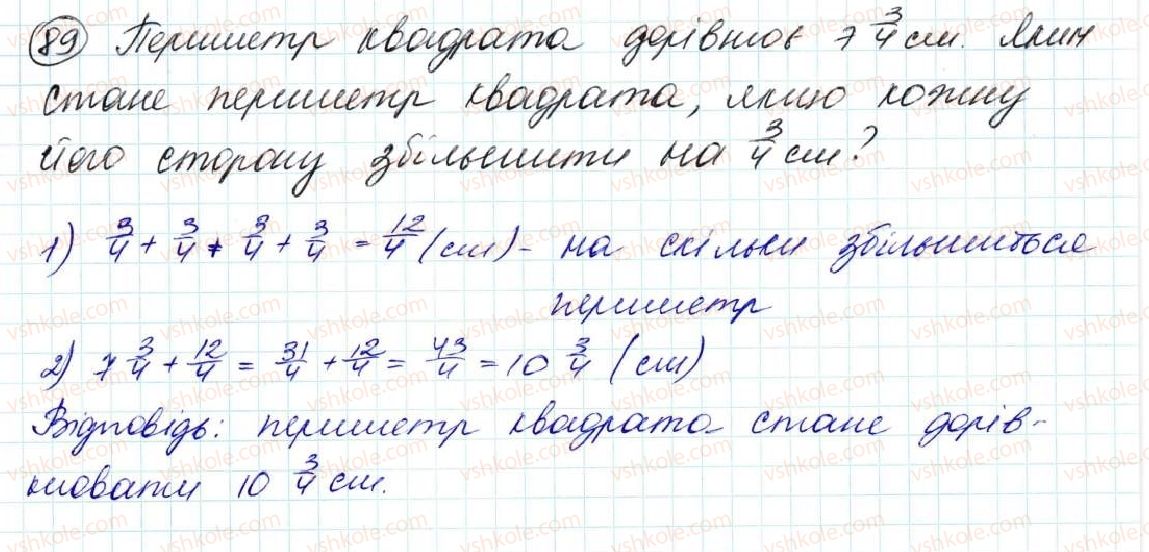 89 Периметр квадрата дорівнює 7 3/4 см. Яким
стане периметр квадрата, якщо кожну
його сторону збільшити на 3/4 см?
1) 3/4 + 3/4 + 3/4 + 3/4 = 12/4 (см) - на скільки збільшиться
периметр
2) 7 3/4 + 12/4 = 31/4 + 12/4 = 43/4 = 10 3/4 (см)
Відповідь: периметр квадрата стане дорів-
нювати 10 3/4 см.